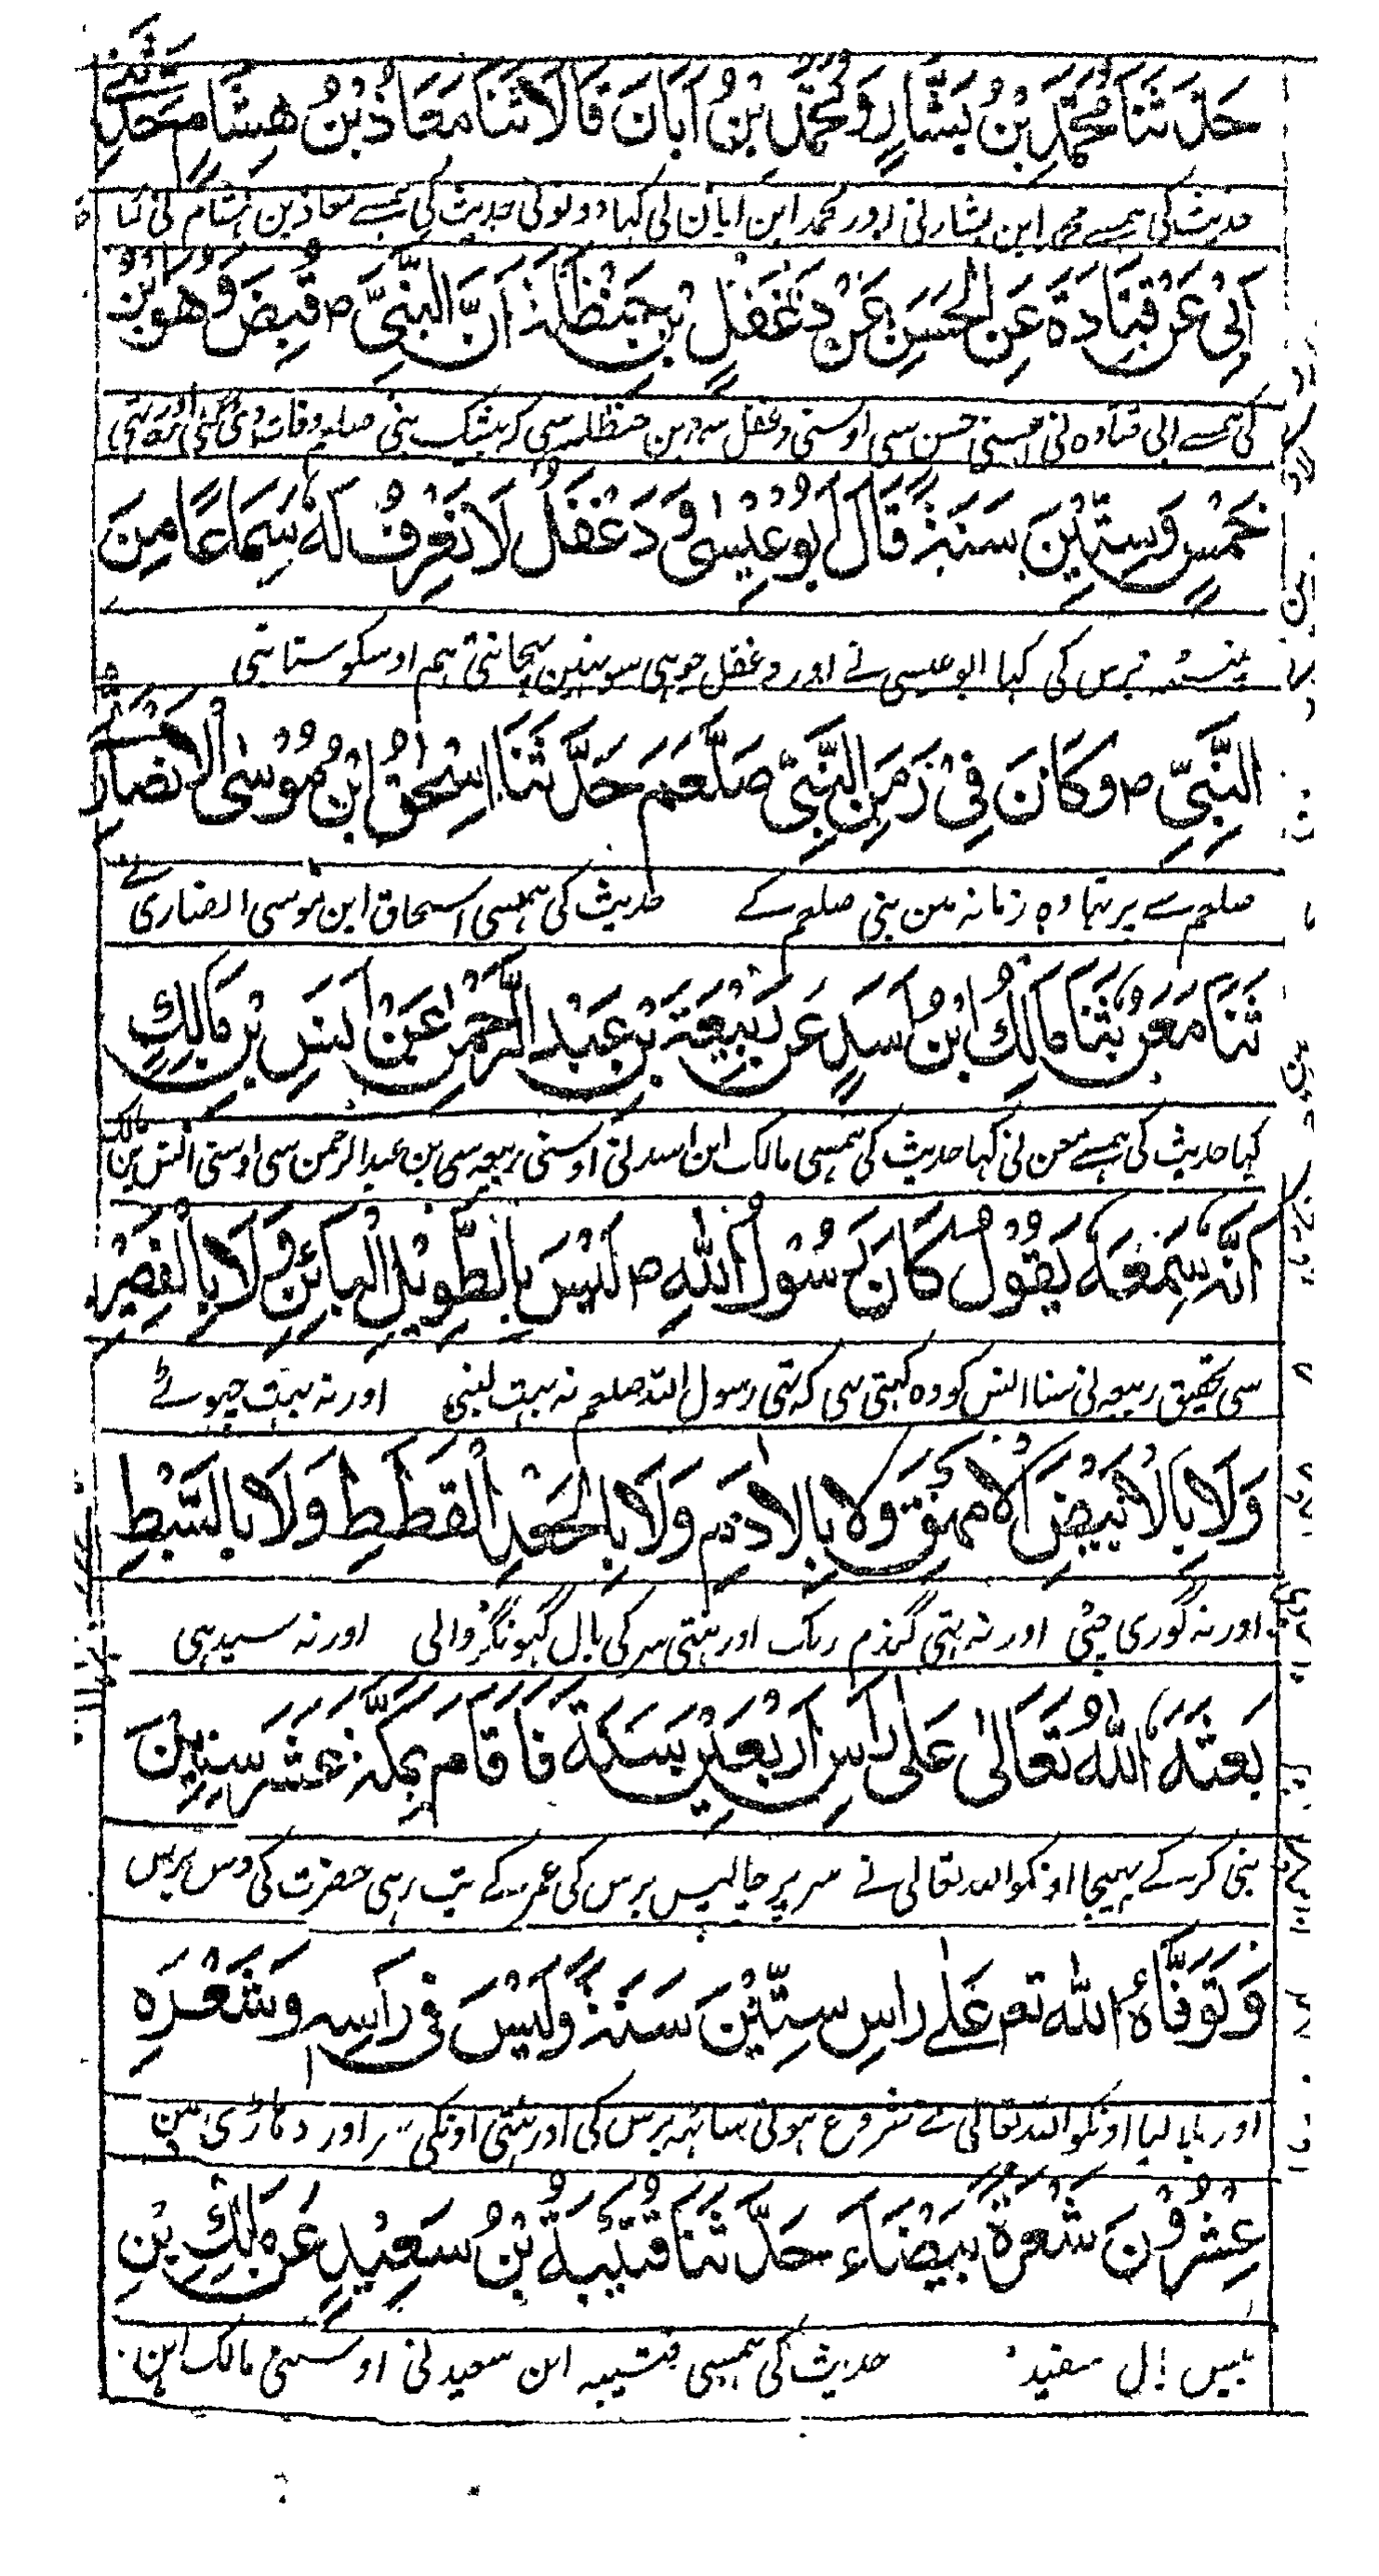 حَدَّثَنَا مُحَمَّدُ بْنُ بَشَّارٍ وَمُحَمَّدُ بْنُ اَبَانَ قَالَا ثَنَا مَعَاذُ بْنُ هِشَامٍ حَدَّثَنِي
حدیث کی ہمسے محمد ابن بشار نی اور محمد ابن ابان نی کہا دونونی حدیث کی ہمسے معاذ بن ہشام نی کہا
اَبِىْ عَنْ قَتَادَةَ عَنِ الْحَسَنِ عَنْ دَغْفَلِ بْنِ حَنْظَلَةَ اَنَّ النَّبِىَّ ص قُبِضَ وَهُوَ ابْنُ
کی ہمسے ابی قتادہ نی اوسنی حسن سی اوسنی دغفل سی بن حنظلہ سی کہ بیشک نبی صلعم وفات
خَمْسٍ وَسِتِّيْنَ سَنَةً قَالَ اَبُوْ عِيْسٰى وَدَغْفَلُ لَا نَعْرِفُ لَهٗ سِمَاعًا مِنَ
برس کی کہا ابو عیسی نے اور دغفل جو ہی سو نہین پہچانتی ہم اوسکو سنا نبی
النَّبِىِّ ص وَكَانَ فِىْ زَمَنِ النَّبِىِّ صَلَّعَمَ حَدَّثَنَا اِسْحٰقُ ابْنُ مُوْسٰى الْاَنْصَارِ
صلعم سے پر تہا وہ زمانہ مین نبی صلعم کے حدیث کی ہمسی اسحاق ابن موسی انصاری نے
ثَنَا مَعْنٌ ثَنَا مَالِكُ ابْنُ اَسَدٍ عَنْ رَبِيْعَةَ بْنِ عَبْدِ الرَّحْمٰنِ عَنْ اَنَسِ بْنِ مَالِكٍ
کہا حدیث کی ہمسے معن نی کہا حدیث کی ہمسی مالک ابن اسد نی اوسنی ربیعہ سی بن عبد الرحمن سی اوسنی انس بن مالک
اَنَّهٗ سَمِعَهٗ يَقُوْلُ كَانَ رَسُوْلُ اللهِ ص لَيْسَ بِالطَّوِيْلِ الْبَائِنِ وَلَا بِالْقَصِيْرِ
سی تحقیق ربیعہ نی سنا انس کو وہ کہتی سی کہ تہی رسول اللہ صلعم نہ بہت لنبی اور نہ بہت چہوٹے
وَلَا بِالْاَبْيَضِ الْاَمْهَقِ وَلَا بِالْاٰدَمِ وَلَا بِالْجَعْدِ الْقَطَطِ وَلَا بِالسَّبْطِ
اور نہ گوری چٹی اور نہ تہی گندم رنگ اور نہتی سر کی بال گہونگر والی اور نہ سیدہی
بَعَثَهُ اللهُ تَعَالٰى عَلٰى رَاْسِ اَرْبَعِيْنَ سَنَةً فَاَقَامَ بِمَكَّةَ عَشْرَ سِنِيْنَ
نبی کرکے بہیجا اونکو اللہ تعالی نے سر پر چالیس برس کی عمر کے تب رہی حضرت کی دس برس
وَتَوَفَّاهُ اللهُ تعم عَلٰى رَاسِ سِتِّيْنَ سَنَةً وَلَيْسَ فِى رَاْسِهٖ وَشَعْرَهٖ
اور بلا لیا اونکو اللہ تعالی نے شروع ہوئی ساٹہہ برس کی اور نہتی اونکی سر اور داڑی مین
عِشْرُوْنَ شَعْرَةً بَيْضَاءَ حَدَّثَنَا قُتَيْبَةُ بْنُ سَعِيْدٍ عَنْ مَالِكِ بْنِ
بیس بال سفید حدیث کی ہمسی قتیبہ ابن سعید نی اوسنی مالک ابن